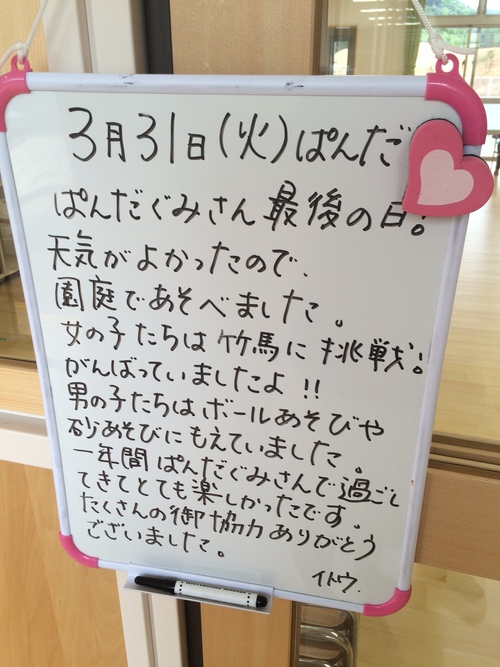 3月31日(火)ぱんだ
ぱんだぐみさん最後の日!
天気がよかったので、
園庭であそべました。
女の子たちは竹馬に挑戦!
がんばっていましたよ!!
男の子たちはボールあそびや
砂あそびにもえていました。
一年間ぱんだぐみさんで過ごし
てきてとても楽しかったです。
たくさんの御協力ありがとう
ございました。
イトウ.